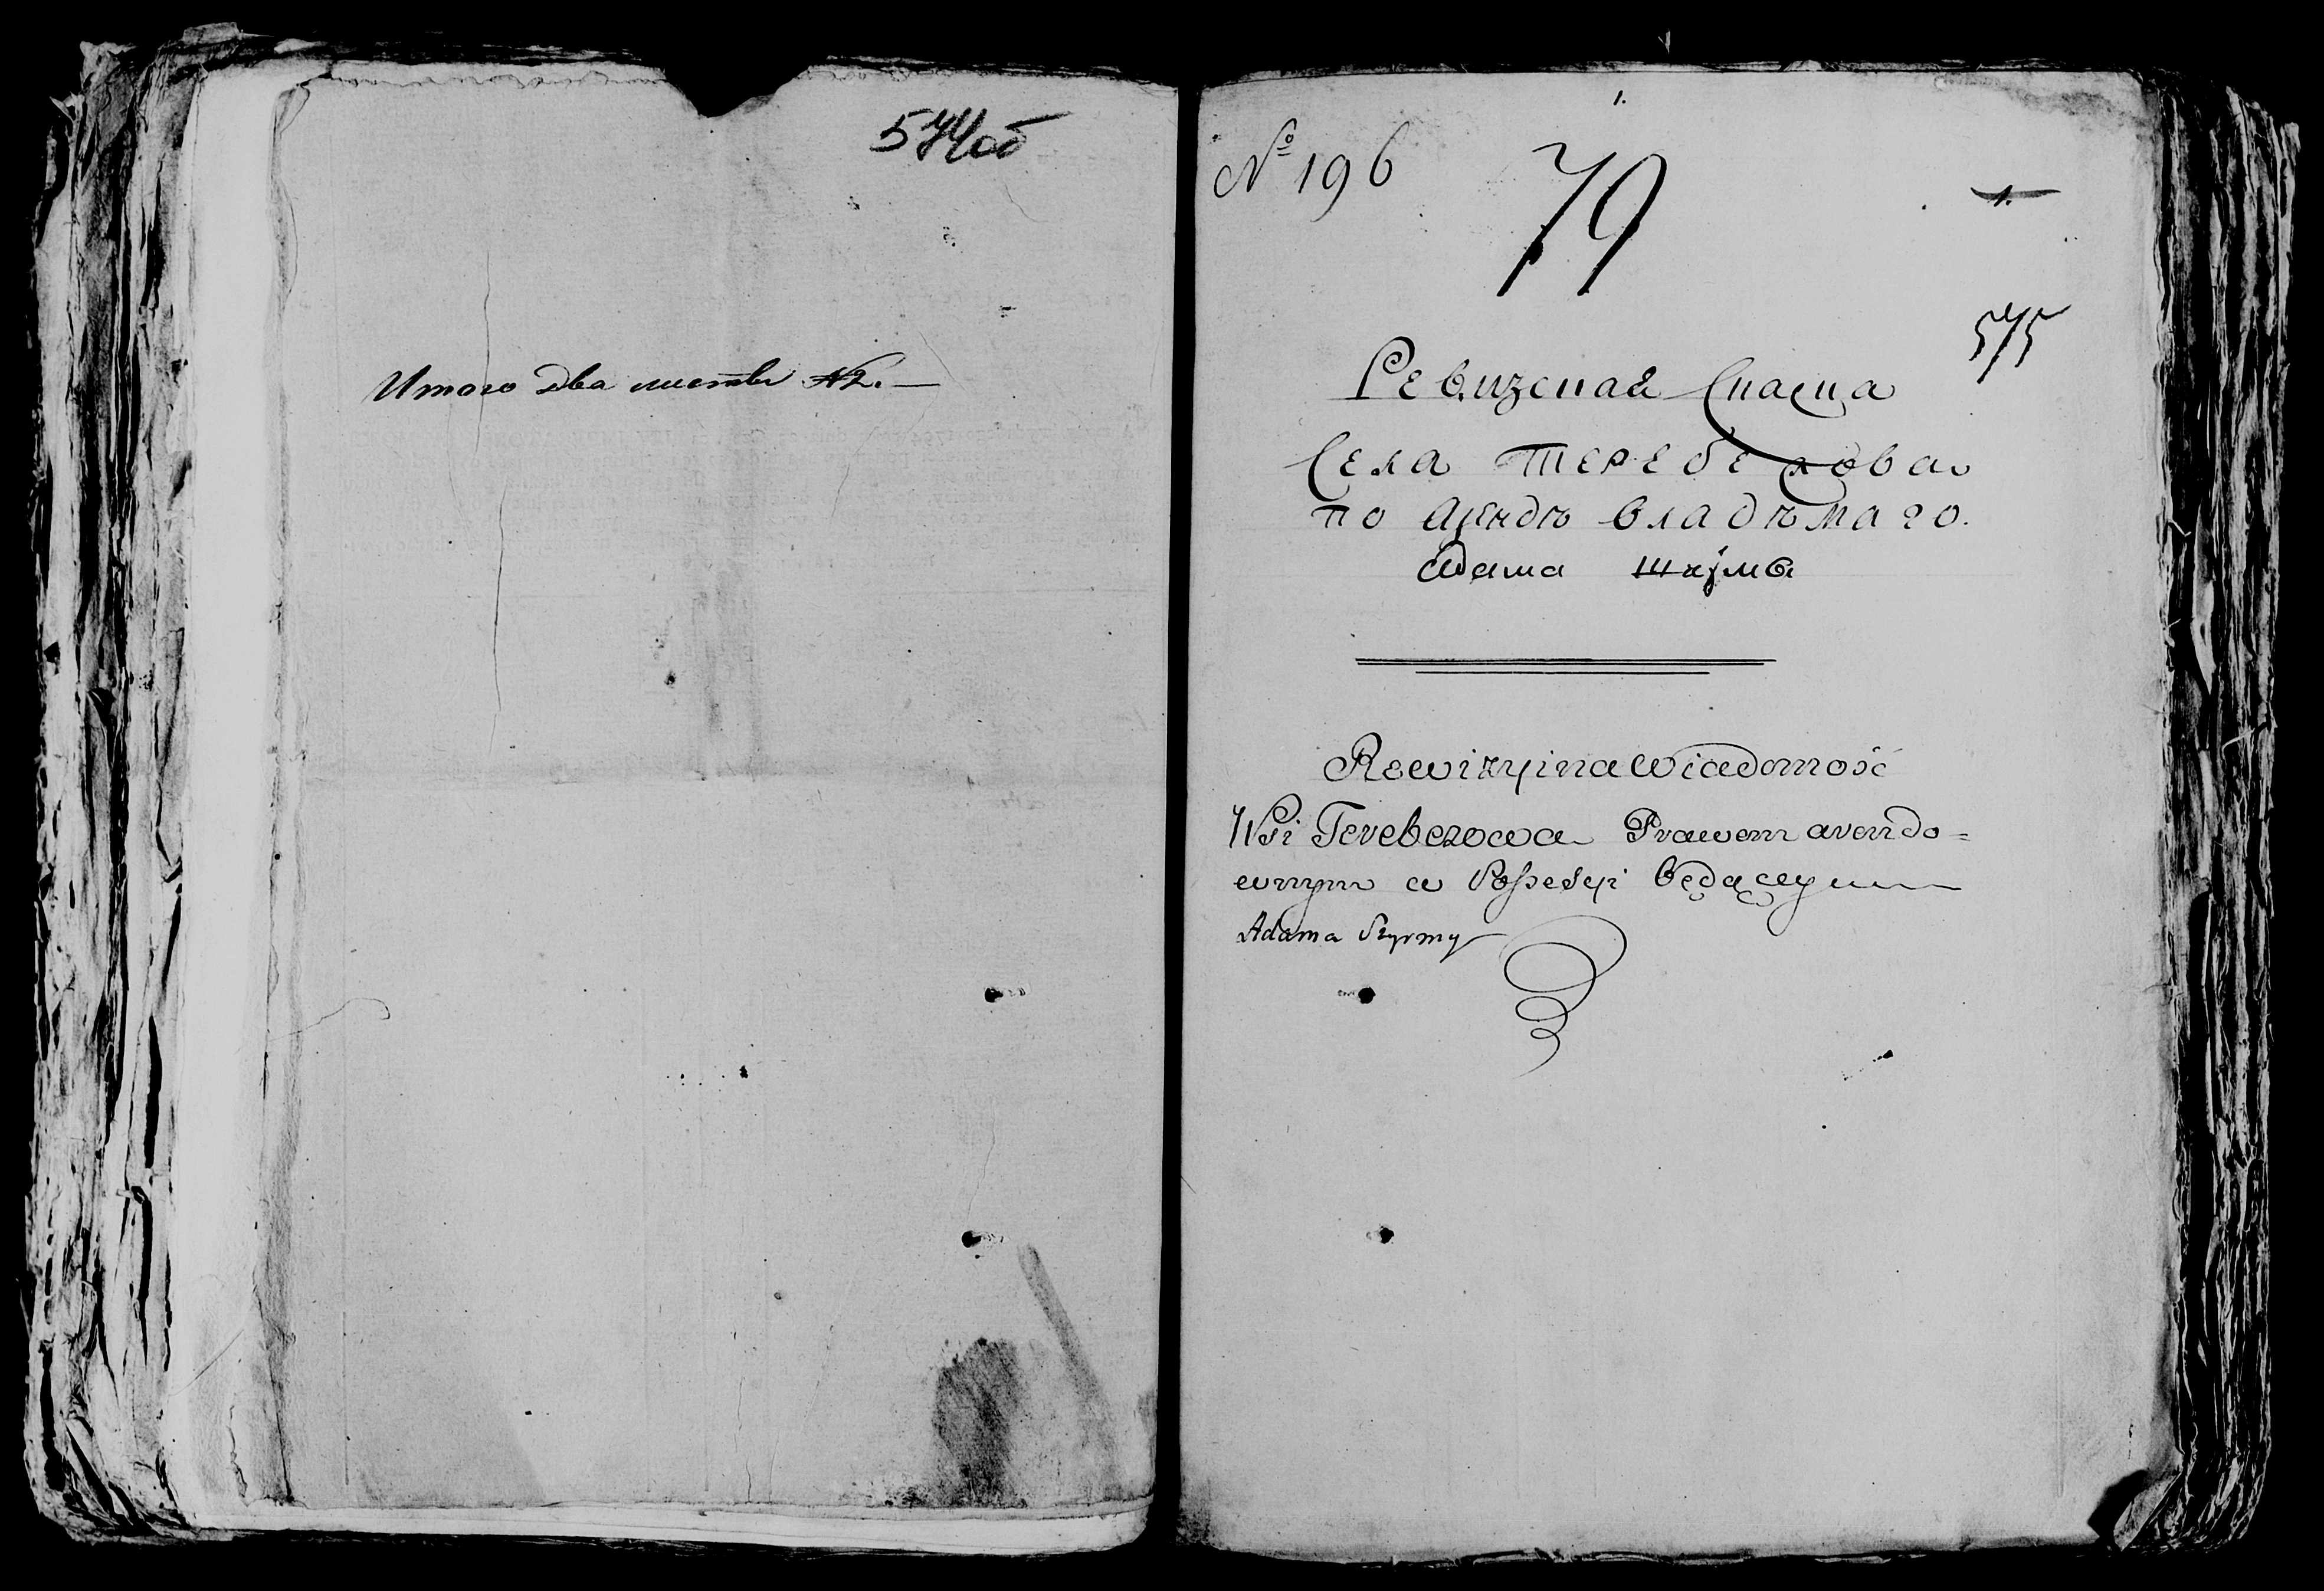 574об
Итого два листа №2. —
1.
№ 196
79
1.
575
Ревизская Сказка
Села Теребежова
по арендѣ владѣмаго.
Адама
Rewizyina Wiadomość
Wsi Terebezowa Prawem arendo=
wnym w Possesyi będącey
Adama Szyrmy